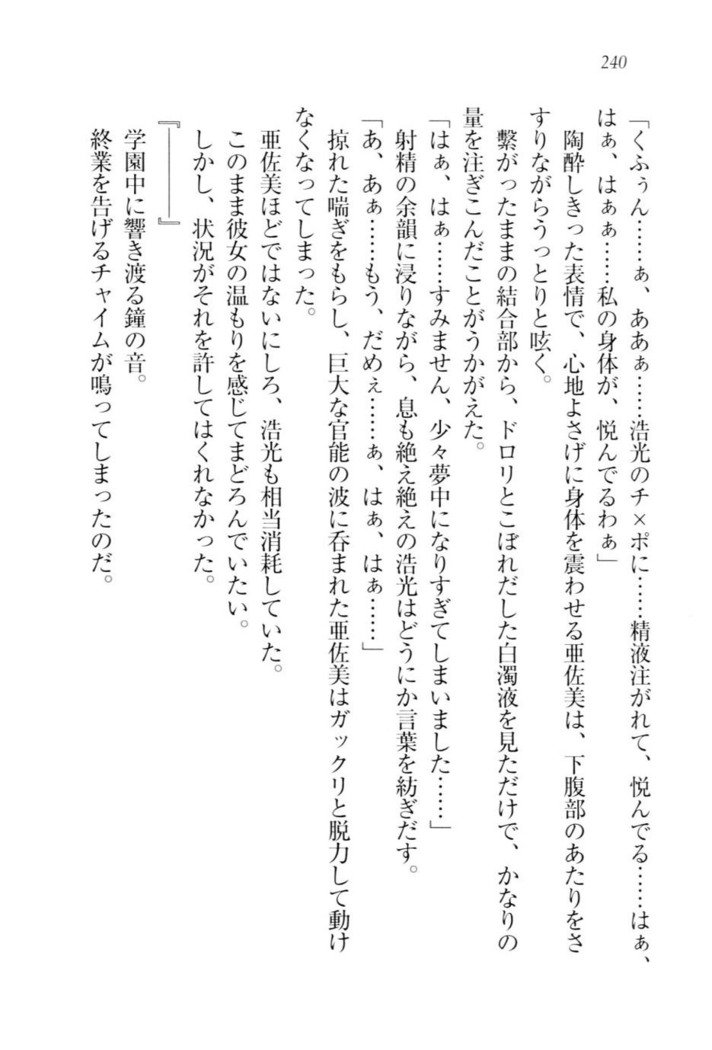 240
「くふぅん……ぁ、ああぁ……浩光のチ×ポに……精液注がれて、悦んでる……はぁ、
はぁ、はぁぁ……私の身体が、悦んでるわぁ」
陶酔しきった表情で、心地よさげに身体を震わせる亜佐美は、下腹部のあたりをさ
すりながらうっとりと呟く。
繋がったままの結合部から、ドロリとこぼれだした白濁液を見ただけで、かなりの
量を注ぎこんだことがうかがえた。
「はぁ、はぁ……すみません、少々夢中になりすぎてしまいました……」
射精の余韻に浸りながら、息も絶え絶えの浩光はどうにか言葉を紡ぎだす。
「あ、あぁ……もう、だめぇ……ぁ、はぁ、はぁ……」
掠れた喘ぎをもらし、巨大な官能の波に呑まれた亜佐美はガックリと脱力して動け
なくなってしまった。
亜佐美ほどではないにしろ、浩光も相当消耗していた。
このまま彼女の温もりを感じてまどろんでいたい。
しかし、状況がそれを許してはくれなかった。
『――――』
学園中に響き渡る鐘の音。
終業を告げるチャイムが鳴ってしまったのだ。